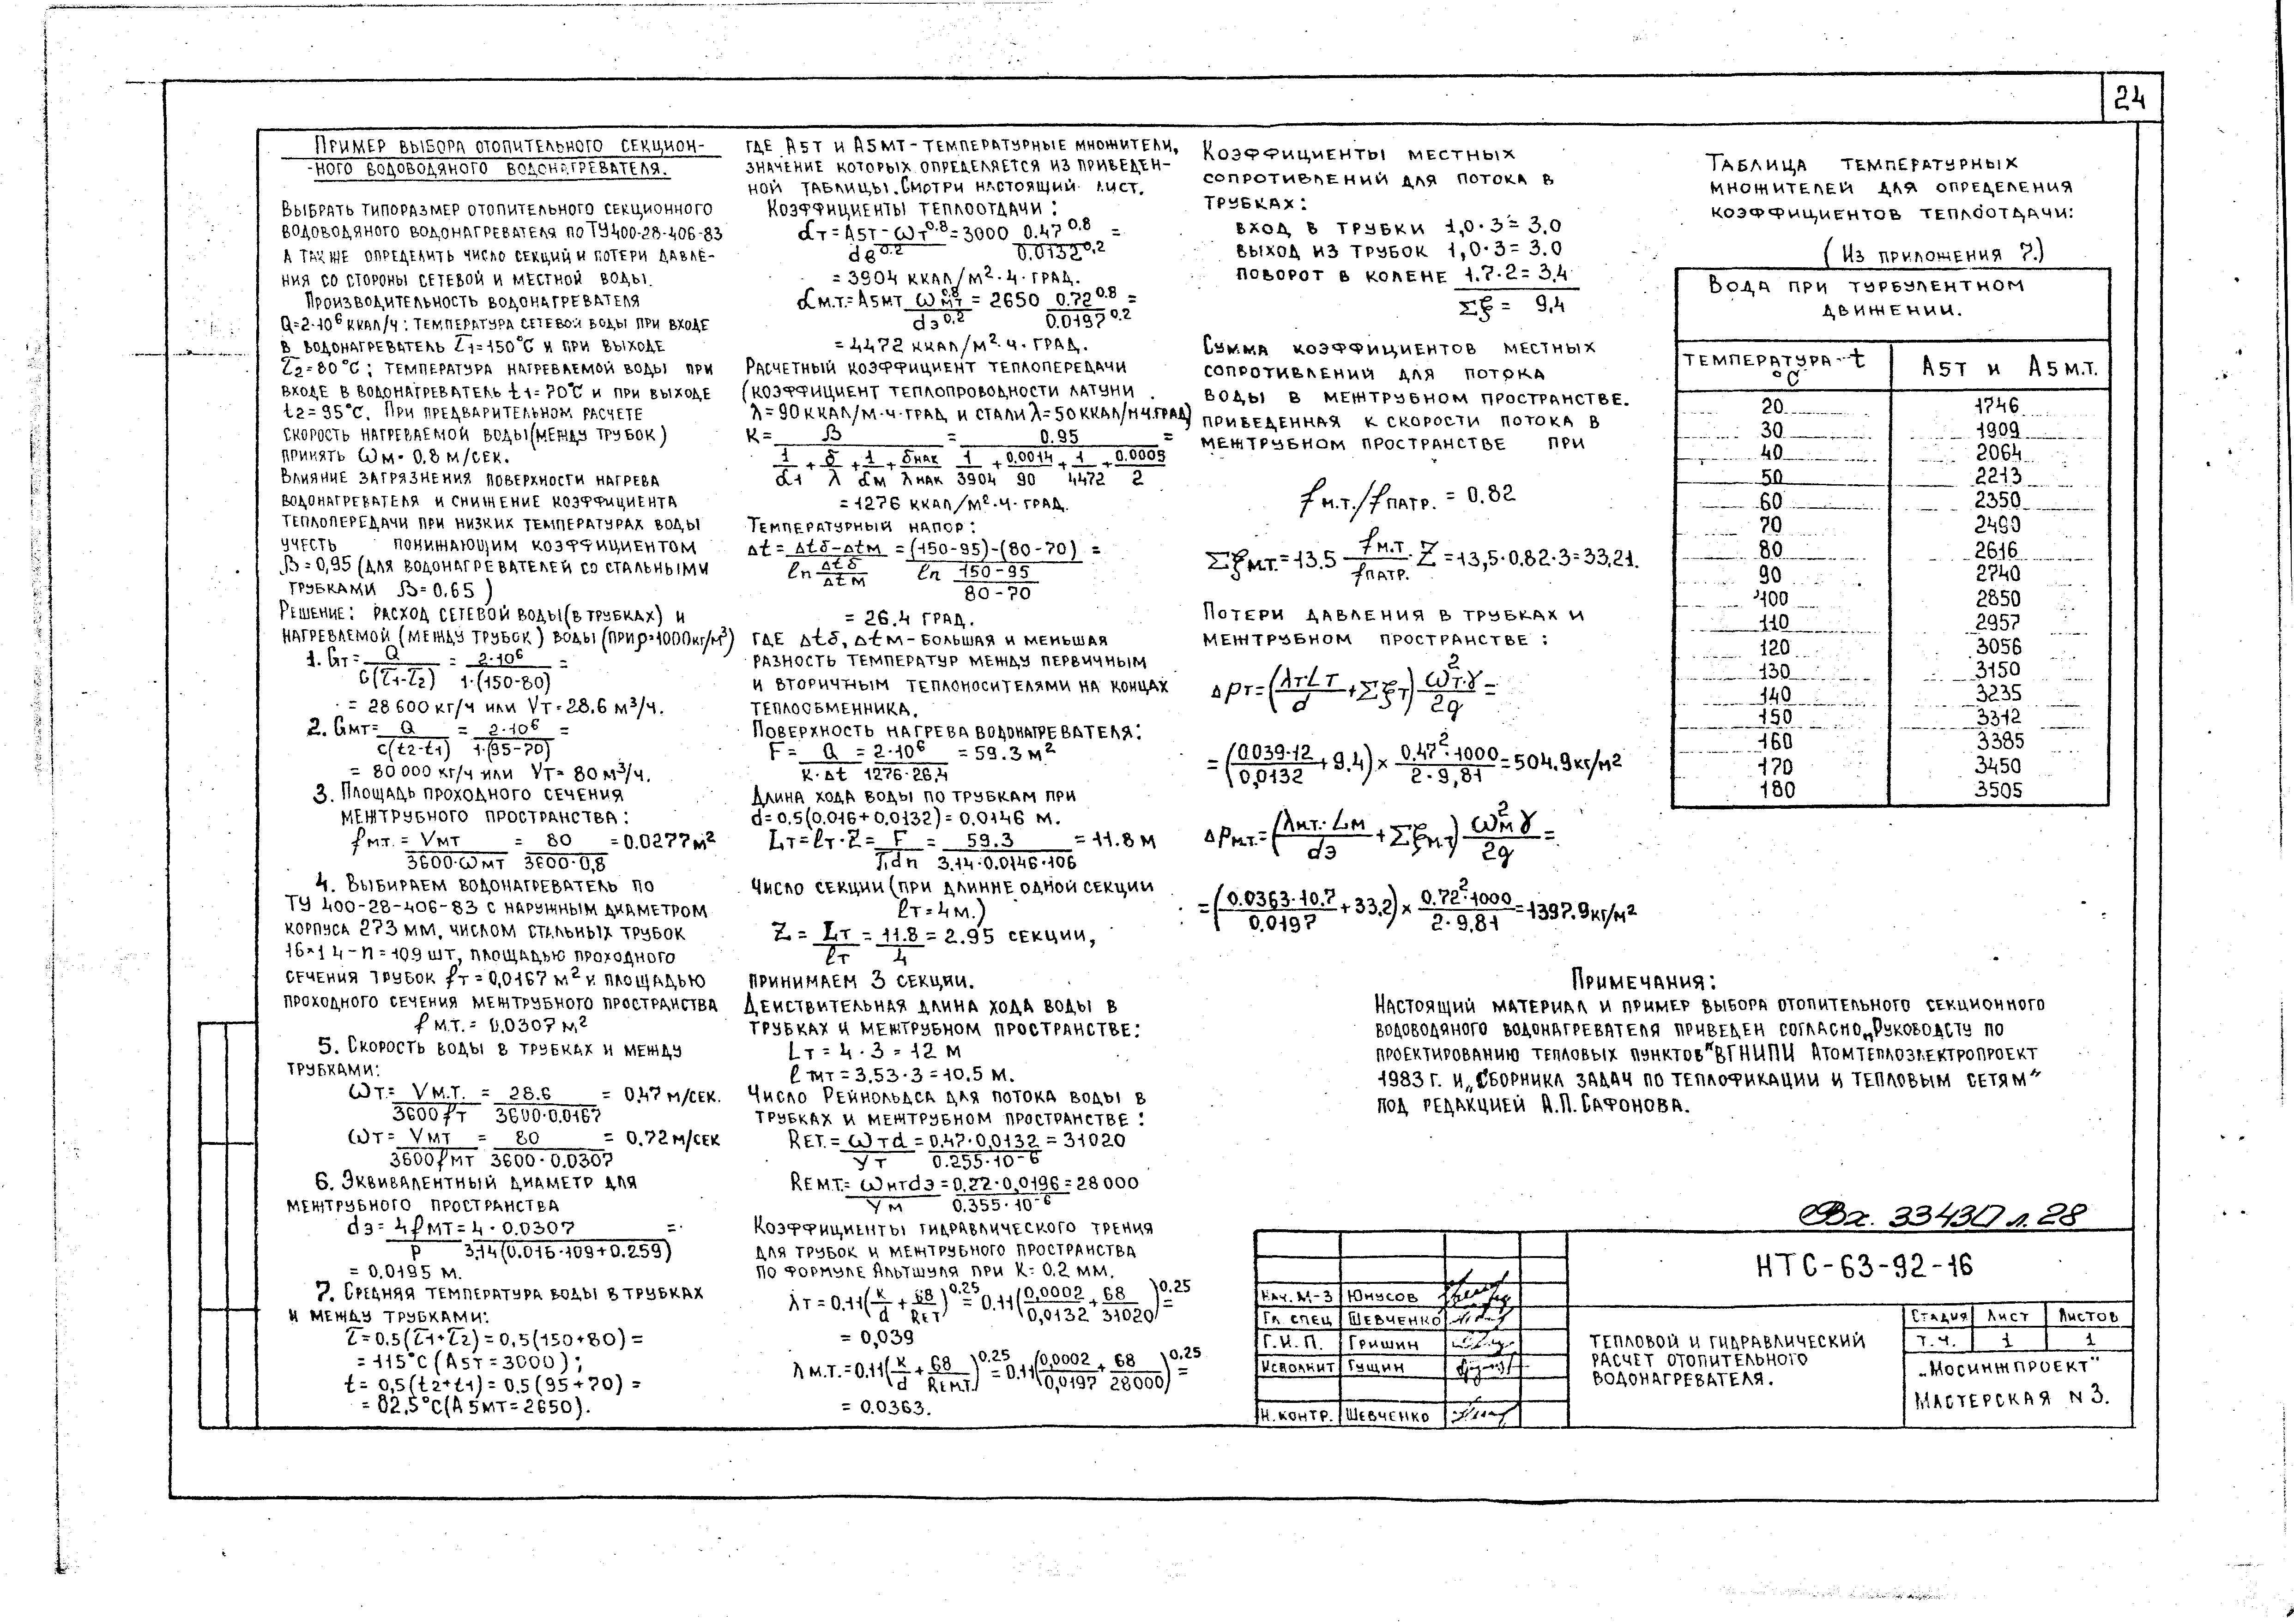 24
Пример выбора отопительного секцион-
-ного водоводяного водонагревателя.
Выбрать типоразмер отопительного секционного
водоводяного водонагревателя по ТУ400-28-406-83
а также определить число секций и потери давле-
ния со стороны сетевой и местной воды.
Производительность водонагревателя
Q=2·10⁶ ккал/ч; температура сетевой воды при входе
в водонагреватель τ1=150°С и при выходе
τ2=80°С; температура нагреваемой воды при
входе в водонагреватель t1=70°С и при выходе
t2=95°С. При предварительном расчете
скорость нагреваемой воды (между трубок)
принять ωм=0,8 м/сек.
Влияние загрязнения поверхности нагрева
водонагревателя и снижение коэффициента
теплопередачи при низких температурах воды
учесть понижающим коэффициентом
β=0,95 (для водонагревателей со стальными
трубками β=0,65)
Решение: расход сетевой воды (в трубках) и
нагреваемой (между трубок) воды (при ρ=1000кг/м³)
1. Gт= Q / C(τ1-τ2) = 2·10⁶ / 1·(150-80) =
= 28600 кг/ч или Vт=28.6 м³/ч.
2. Gмт= Q / c(t2-t1) = 2·10⁶ / 1·(95-70) =
= 80 000 кг/ч или Vт= 80м³/ч.
3. Площадь проходного сечения
межтрубного пространства:
fм.т. = Vмт / 3600·ωмт = 80 / 3600·0,8 = 0.0277м²
4. Выбираем водонагреватель по
ТУ 400-28-406-83 с наружным диаметром
корпуса 273 мм, числом стальных трубок
16×1 4 - n=109 шт, площадью проходного
сечения трубок fт=0,0167 м² и площадью
проходного сечения межтрубного пространства
fм.т. = 0.0307 м²
5. Скорость воды в трубках и между
трубками:
ωт= Vм.т. / 3600 fт = 28.6 / 3600·0.0167 = 0.47 м/сек.
ωт= Vмт / 3600 fмт = 80 / 3600·0.0307 = 0.72 м/сек
6. Эквивалентный диаметр для
межтрубного пространства
dэ= 4fмт / P = 4·0.0307 / 3,14(0.016·109+0.259) =
= 0,0195 м.
7. Средняя температура воды в трубках
и между трубками:
τ=0.5(τ1+τ2)=0,5(150+80)=
=115°С (А5т=3000);
t= 0,5(t2+t1)=0.5(95+70)=
= 82,5°С(А5мт=2650).
где А5т и А5мт - температурные множители,
значение которых определяется из приведен-
ной таблицы. Смотри настоящий лист.
Коэффициенты теплоотдачи:
αт=А5т·ωт^0.8 / dв^0.2 =3000 0.47^0.8 / 0.0132^0,2 =
= 3904 ккал/м²·ч·град.
αм.т.=А5мт ωмт^0.8 / dэ^0.2 = 2650 0.72^0.8 / 0.0197^0.2 =
= 4472 ккал/м²·ч·град.
Расчетный коэффициент теплопередачи
(коэффициент теплопроводности латуни
λ=90ккал/м·ч·град и стали λ=50ккал/мч.град)
К= β / (1/α1 + δ/λ + 1/αм + δнак/λнак) = 0.95 / (1/3904 + 0.0014/90 + 1/4472 + 0.0005/2) =
=1276 ккал/м²·ч·град.
Температурный напор:
Δt= (Δtб-Δtм) / ln Δtб/Δtм = (150-95)-(80-70) / ln (150-95)/(80-70) =
= 26.4 град.
где Δtб, Δtм - большая и меньшая
разность температур между первичным
и вторичным теплоносителями на концах
теплообменника.
Поверхность нагрева водонагревателя:
F= Q / К·Δt = 2·10⁶ / 1276·26,4 = 59.3 м²
Длина хода воды по трубкам при
d=0,5(0.016+0,0132)=0.0146 м.
Lт=ℓт·Z= F / πdn = 59.3 / 3.14·0.0146·106 = 11.8 м
Число секции (при длинне одной секции
ℓт=4м.)
Z= Lт / ℓт = 11.8 / 4 = 2.95 секции,
принимаем 3 секции.
Действительная длина хода воды в
трубках и межтрубном пространстве:
Lт = 4·3 = 12 м
ℓмт=3,53·3=10,5 м.
Число Рейнольдса для потока воды в
трубках и межтрубном пространстве:
Rет.= ωтd / γт = 0,47·0,0132 / 0.255·10⁻⁶ = 31020
Rемт.= ωмтdэ / γм = 0,72·0,0196 / 0.355·10⁻⁶ =28000
Коэффициенты гидравлического трения
для трубок и межтрубного пространства
по формуле Альтшуля при К=0.2 мм.
λт=0.11(к/d + 68/Rет)^0.25 = 0.11(0,0002/0,0132 + 68/31020)^0.25 =
= 0,039
λм.т.=0.11(к/d + 68/Rем.т.)^0.25 = 0.11(0,0002/0,0197 + 68/28000)^0.25 =
= 0.0363.
Коэффициенты местных
сопротивлений для потока в
трубках:
вход в трубки 1,0·3=3.0
выход из трубок 1,0·3=3.0
поворот в колене 1.7·2=3,4
Σξ= 9,4
Сумма коэффициентов местных
сопротивлений для потока
воды в межтрубном пространстве.
приведенная к скорости потока в
межтрубном пространстве при
fм.т./fпатр. = 0.82
Σξм.т.=13.5 fм.т/fпатр.·Z=13,5·0.82·3=33,21.
Потери давления в трубках и
межтрубном пространстве:
Δpт=(λтLт/d+Σξт) ωт²·γ/2g=
=(0.039·12/0,0132+9.4)× 0.47²·1000/2·9,81=504.9кг/м²
Δpм.т.=(λм.т.·Lм/dэ+Σξм.т) ωм²γ/2g=
=(0.0363·10.7/0.0197+33,2)× 0.72²·1000/2·9,81=1397.9кг/м²
Таблица температурных
множителей для определения
коэффициентов теплоотдачи:
(Из приложения 7.)
Вода при турбулентном
движении.
температура t °С А5т и А5м.т.
20 1746
30 1909
40 2064
50 2213
60 2350
70 2490
80 2616
90 2740
100 2850
110 2957
120 3056
130 3150
140 3235
150 3312
160 3385
170 3450
180 3505
Примечания:
Настоящий материал и пример выбора отопительного секционного
водоводяного водонагревателя приведен согласно „Руководсту по
проектированию тепловых пунктов" ВГНИПИ Атомтеплоэлектропроект
1983 г. и „Сборника задач по теплофикации и тепловым сетям"
под редакцией А.П.Сафонова.
Вх. 33430 л.28
НТС-63-92-16
Нач. М-3 Юнусов
Гл спец Шевченко
Г.И.П. Гришин
Исполнит Гущин
Н.контр. Шевченко
тепловой и гидравлический
расчет отопительного
водонагревателя.
Стадия Лист Листов
Т.Ч. 1 1
„Мосинжпроект"
Мастерская N 3.